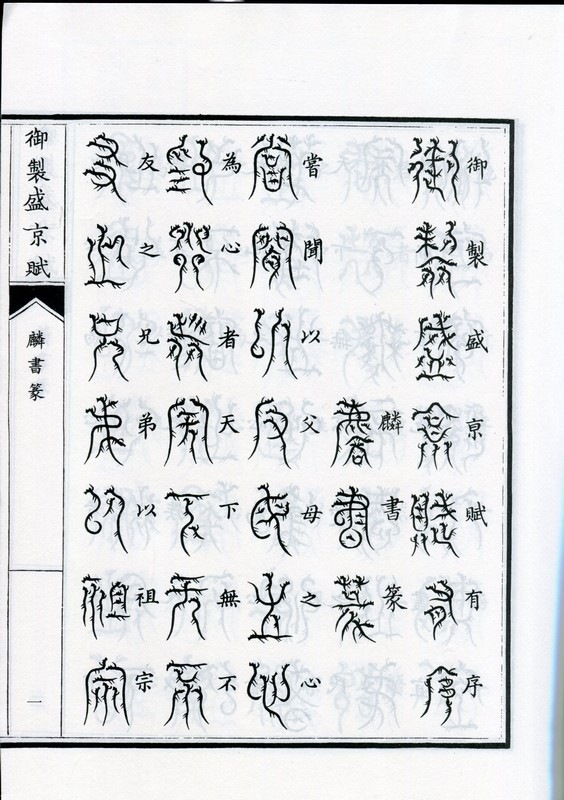 御製盛京賦有序
麟書篆
嘗聞以父母之心
為心者天下無不
友之兄弟以祖宗
御製盛京賦
麟書篆
一